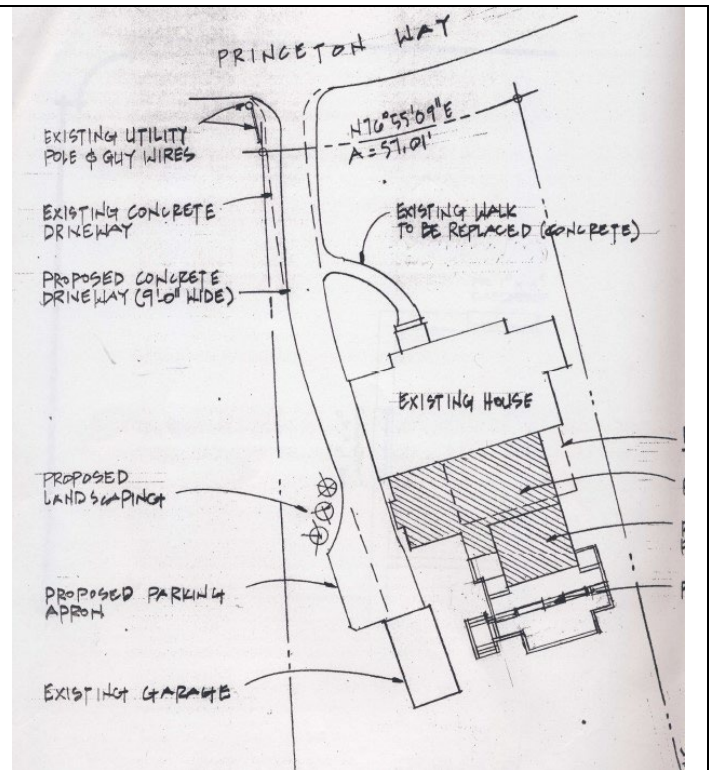 PRINCETON WAY
N76°55'09"E
A=57.01'
EXISTING UTILITY
POLE & GUY WIRES
EXISTING CONCRETE
DRIVEWAY
EXISTING WALK
TO BE REPLACED (CONCRETE)
PROPOSED CONCRETE
DRIVEWAY (9'0" WIDE)
EXISTING HOUSE
PROPOSED
LANDSCAPING
PROPOSED PARKING
APRON
EXISTING GARAGE